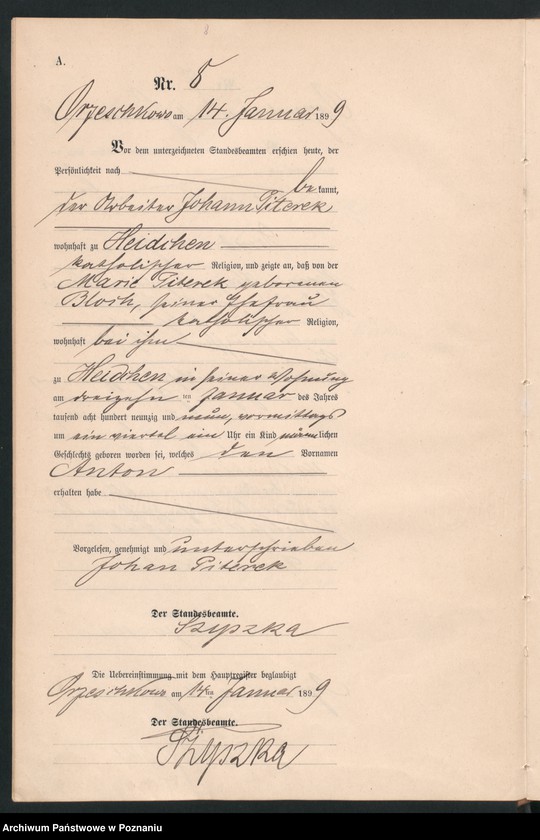 8
A.
Nr. 8
Orzeschkowo am 14. Januar 1899
Vor dem unterzeichneten Standesbeamten erschien heute, der
Persönlichkeit nach be kannt,
der Arbeiter Johann Piterek
wohnhaft zu Heidchen
katholischer Religion, und zeigte an, daß von der
Marie Piterek geborenen
Bloch, seiner Ehefrau
katholischer Religion,
wohnhaft bei ihm
zu Heidchen, in seiner Wohnung
am dreizehn ten Januar des Jahres
tausend acht hundert neunzig und neun, vormittags
um ein viertel ein Uhr ein Kind männlichen
Geschlechts geboren worden sei, welches den Vornamen
Anton
erhalten habe
Vorgelesen, genehmigt und unterschrieben
Johan Piterek
Der Standesbeamte.
Szyszka
Die Uebereinstimmung mit dem Hauptregister beglaubigt
Orzeschkowo am 14ten Januar 1899
Der Standesbeamte.
Szyszka
Archiwum Państwowe w Poznaniu